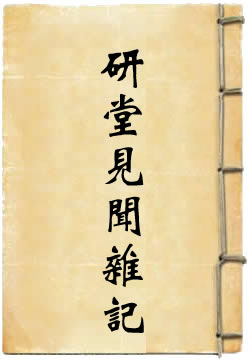 研堂見聞雜記